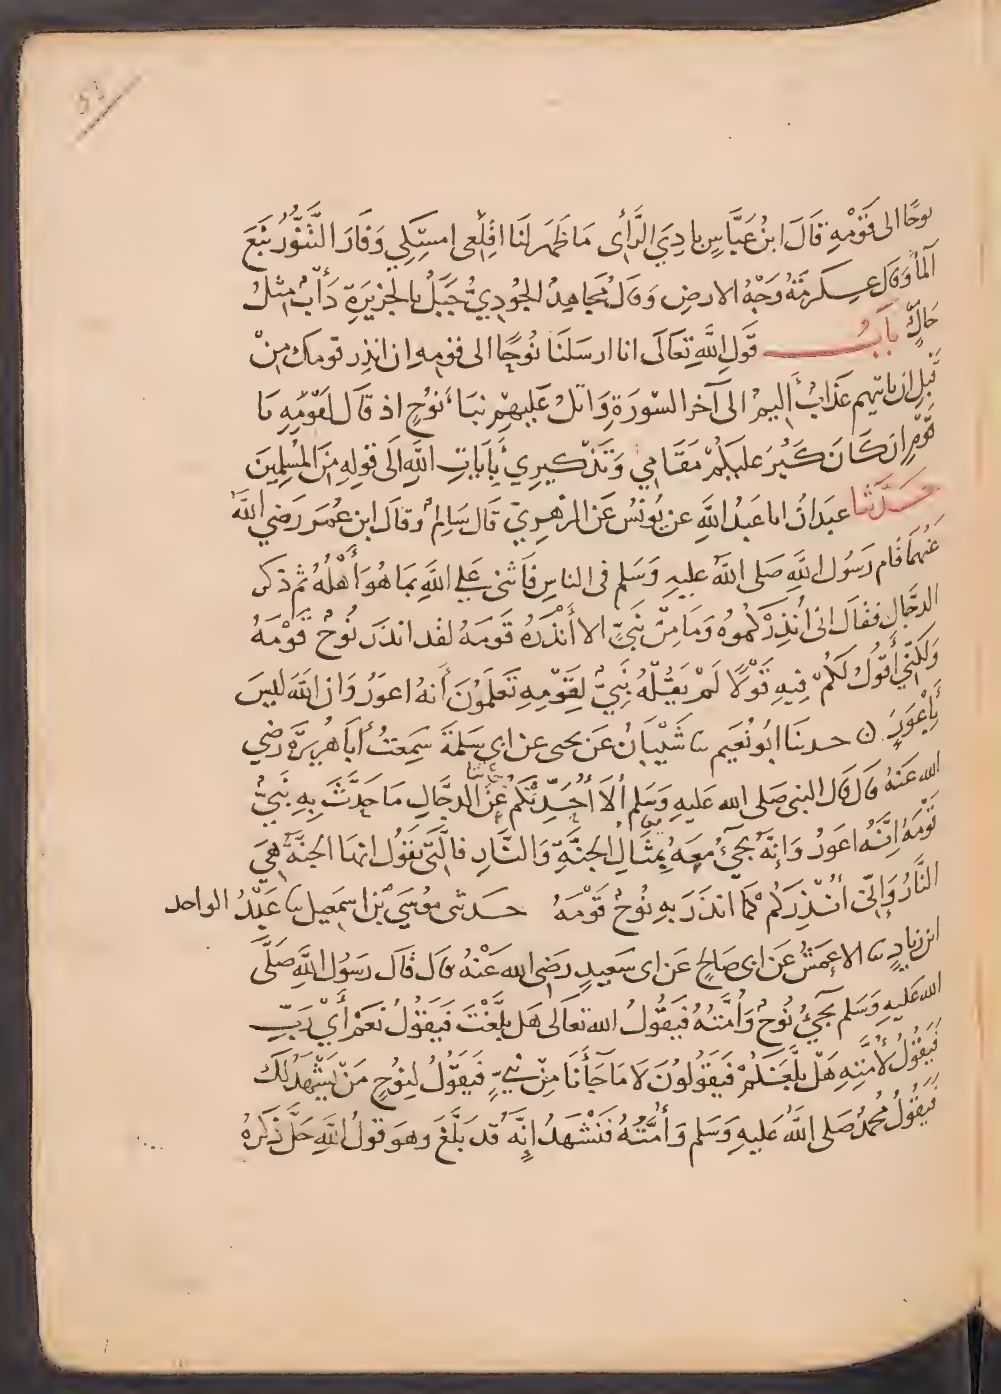 نوحًا الى قَوْمِهِ قَالَ ابنُ عَبَّاسٍ بَادِيَ الرَّأى مَا ظَهَر لَنَا اَقْلِعى امسِكِي وَفَارَ التَّنُّورُ نَبَعَ
المآُ وَقَال عِكرمَةُ وَجْهُ الارضِ وَقَالَ مُجَاهِدٌ الجُوديُّ جَبَلٌ بالجَزيرَةِ دَأْبُ مِثْلُ
حَالٍ بابُ قَولِ اللَّهِ تَعَالَى انا ارسَلنَا نُوحًا الى قومِهِ ان انذِر قومكَ مِنْ
قَبلِ ان ياتيهم عَذابٌ أَلِيمٌ الى آخر السّورَةِ وَاتلُ عَلَيهِمْ نبَأَ نُوحٍ اذ قَالَ لقَوْمِهِ يَا
قَوْمِ ان كَانَ كَبُرَ عَلَيكُمْ مَقَامِي وَتَذكِيرِي بِآيَاتِ اللَّهِ الَى قولِهِ مِنَ المسْلِمِينَ
حَدَّثنا عبدَانُ انا عَبدُ اللَّهِ عن يُونُسَ عَنِ الزهْرِيّ قَالَ سَالِمٌ وَقَالَ ابن عُمَرَ رَضِي اللَّهُ
عَنْهُمَا قام رَسُول اللَّهِ صَلى اللَّهُ عليهِ وَسَلم فى الناسِ فَاثنى عَلى اللَّهِ بمَا هُوَ أَهْلُهُ ثم ذكر
الدجَّالَ فقَال انى أُنذِرْكُموهُ وَمَا مِنْ نَبيٍّ الا أَنْذَرَهُ قَومَهُ لقد انذَرَ نُوحٌ قَوْمَهُ
وَلَكنِّي أقُولُ لَكُمْ فِيهِ قَوْلًا لَمْ يَقُلْهُ نَبِيٌّ لِقَوْمِهِ تَعلَمُونَ أَنهُ اعوَرُ وَان اللَّهَ ليسَ
بِأعْوَرَ ۞ حدثنا ابُو نُعَيم نا شَيْبَانُ عَن يحيى عن ابى سَلمَةَ سَمِعتُ أَبَا هُرَيرَةَ رَضي
الله عَنهُ قال قَال النبى صَلى الله عَليهِ وَسَلم أَلَا أُحَدِّثُكُم عَنِ الدجَّالِ مَا حَدَّثَ بِهِ نَبِيٌّ
قَوْمَهُ إِنَّهُ اعوَرُ وَإنَّهُ يجِيُ مَعَهُ بِمثَالِ الجَنَّةِ وَالنَّارِ فالَّتي يَقُولُ انهَا الجنَّةُ هِيَ
النَّارُ وَإِنّى أُنْذِرُكُم كما انذَرَ بهِ نُوحٌ قَوْمَهُ حَدثنى مُوسَى بْنُ اسمَعيل نا عَبْدُ الواحد
ابن زيادٍ نا الاعمَشُ عَن ابى صَالحٍ عَن ابى سَعِيدٍ رَضي الله عَنْهُ قالَ قَالَ رَسُولُ اللَّهِ صَلَّى
الله عَليهِ وَسَلم يَجيُ نُوحٌ وَأُمَّتُهُ فَيَقُولُ الله تعَالَى هَل بَلَّغْتَ فَيَقُولُ نَعَمْ أَيْ رَبِّ
فَيَقُولُ لأُمَّتِهِ هَلْ بلَّغَكُمْ فَيَقُولُونَ لَا مَا جَآنَا مِنْ نَبِيٍّ فَيَقُولُ لِنُوحٍ مَنْ يَشْهَدُ لَكَ
فَيَقُولُ مُحمَّدٌ صَلى اللَّهُ عَليهِ وَسَلم وَأُمَّتُهُ فَنَشْهَدُ إِنَّهُ قد بَلَّغَ وهو قولُ اللَّهِ جَلَّ ذِكرُهُ